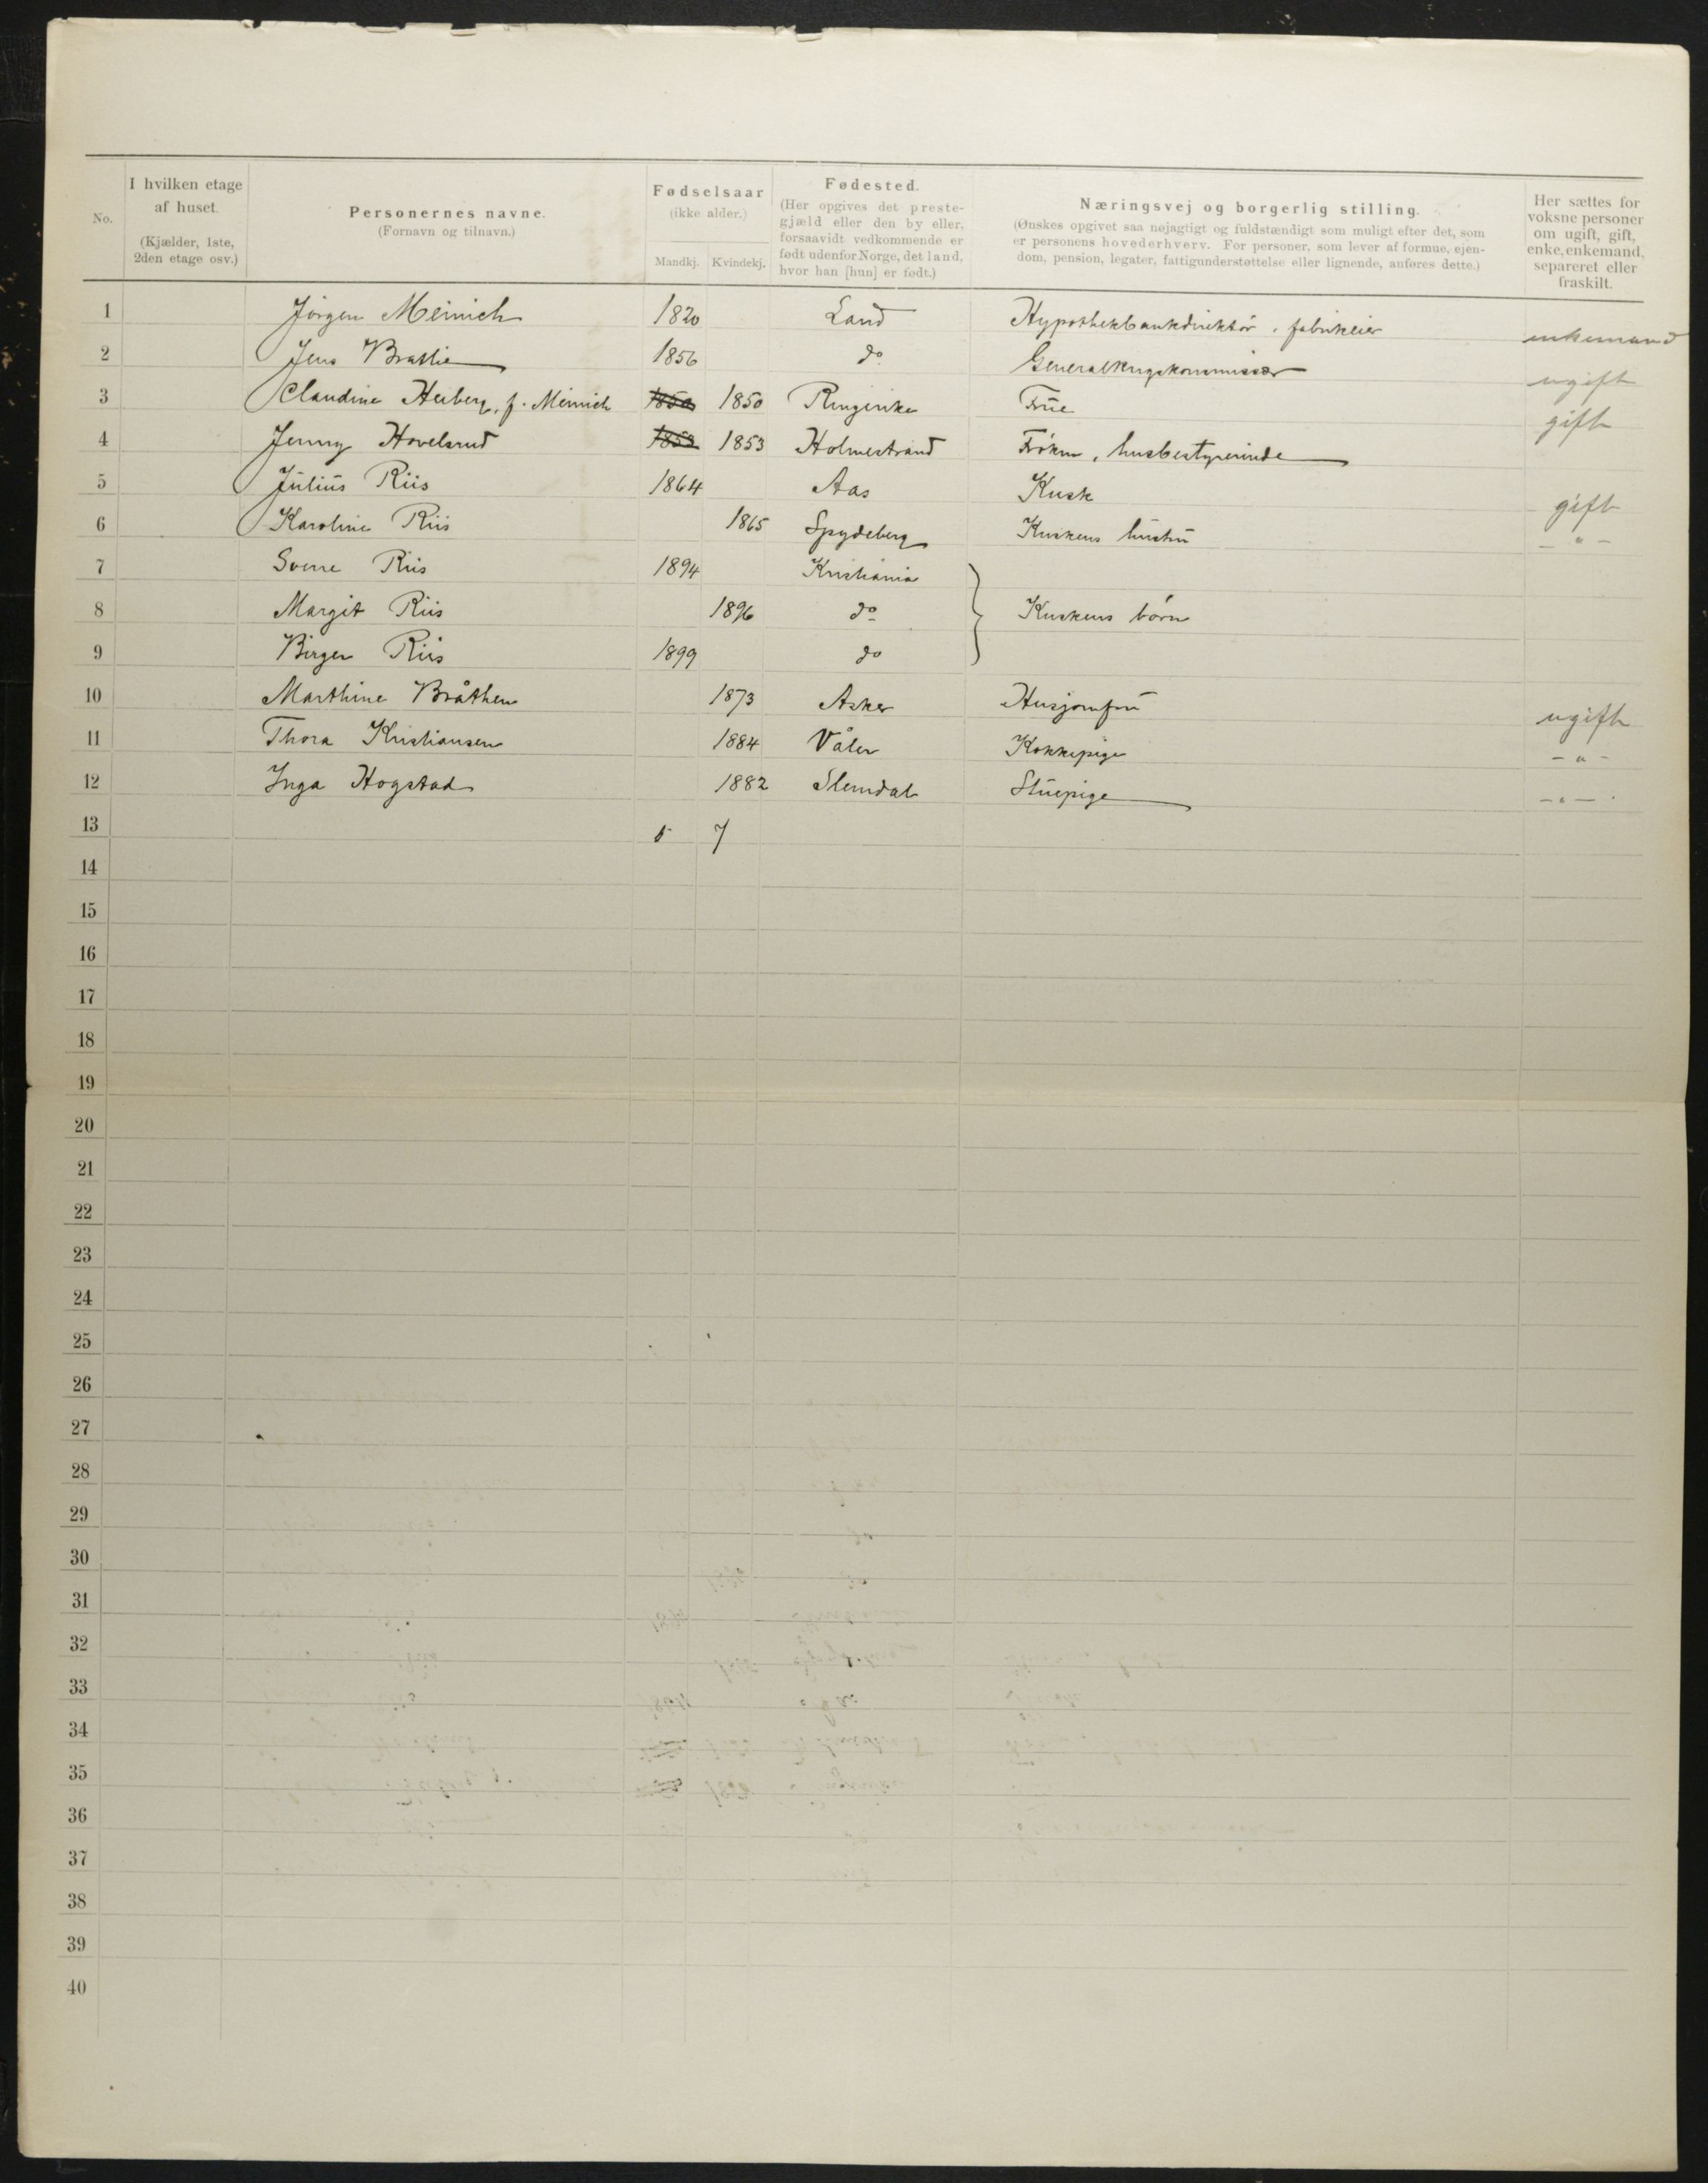 No. | I hvilken etage af huset. (Kjælder, 1ste, 2den etage osv.) | Personernes navne. (Fornavn og tilnavn.) | Fødselsaar (ikke alder.) Mandkj. | Kvindekj. | Fødested. (Her opgives det prestegjæld eller den by eller, forsaavidt vedkommende er født udenfor Norge, det land, hvor han [hun] er født.) | Næringsvej og borgerlig stilling. (Ønskes opgivet saa nøjagtigt og fuldstændigt som muligt efter det, som er personens hovederhverv. For personer, som lever af formue, ejendom, pension, legater, fattigunderstøttelse eller lignende, anføres dette.) | Her sættes for voksne personer om ugift, gift, enke, enkemand, separeret eller fraskilt.
1 Jörgen Meinich 1820 Land Hypothekbankdirektör, fabrikeier enkemand
2 Jens Bratlie 1856 do Generalkrigskommissær ugift
3 Claudine Heiberg, f. Meinich 1850 1850 Ringerike Frue gift
4 Jenny Hovelsrud 1853 1853 Holmestrand Fröken, husbestyrerinde
5 Julius Riis 1864 Aas Kusk gift
6 Karoline Riis 1865 Spydeberg Kuskens hustru - " -
7 Sverre Riis 1894 Kristiania
8 Margit Riis 1896 do Kuskens börn
9 Birger Riis 1899 do
10 Marthine Bråthen 1873 Asker Husjomfru ugift
11 Thora Kristiansen 1884 Våler Kokkepige - " -
12 Inga Hogstad 1882 Slemdal Stuepige - " -
13 5 7
14
15
16
17
18
19
20
21
22
23
24
25
26
27
28
29
30
31
32
33
34
35
36
37
38
39
40